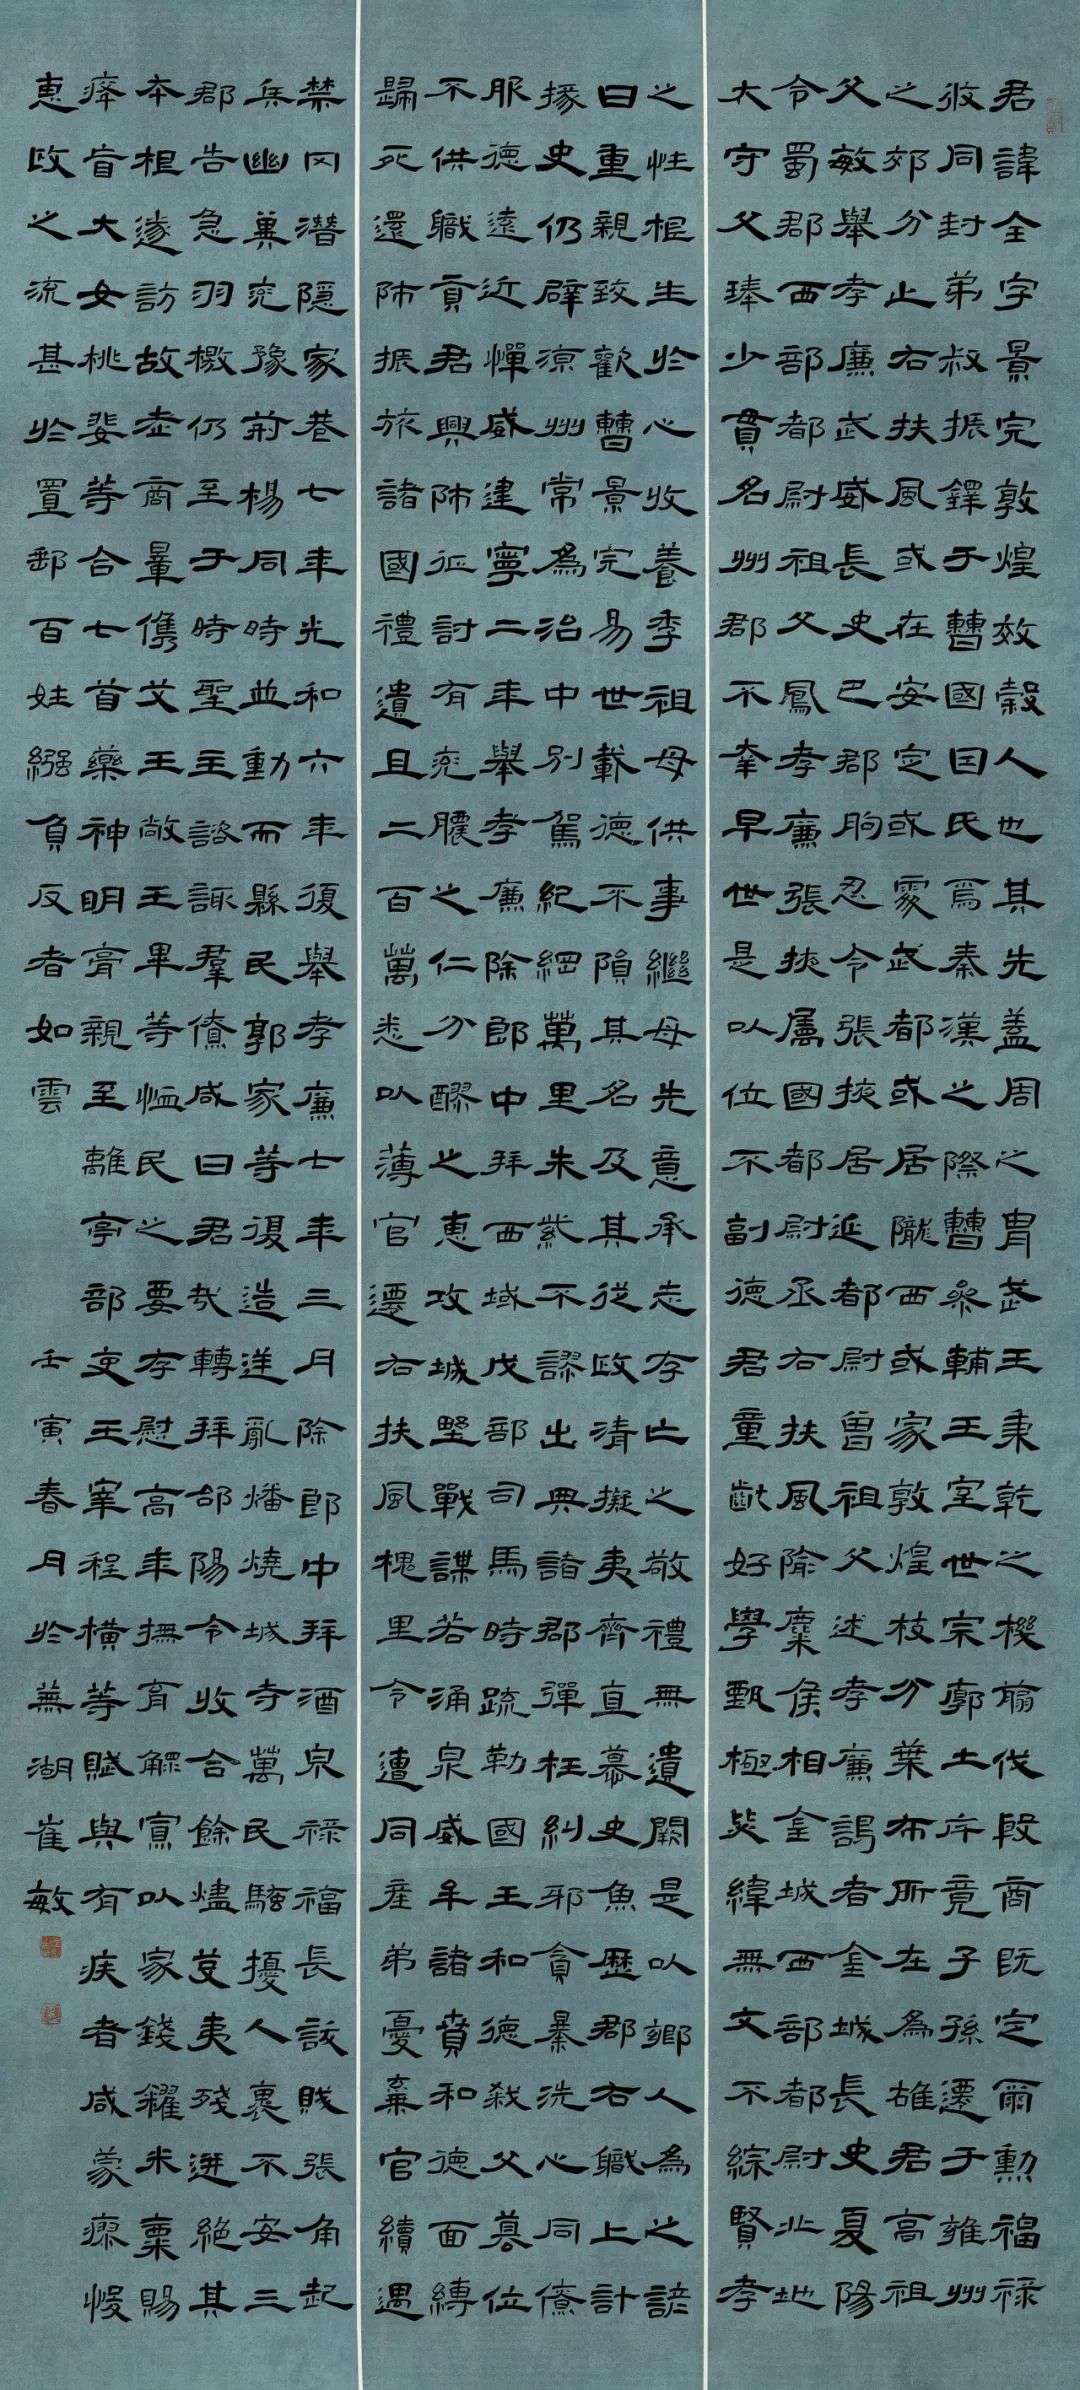 君諱全字景完敦煌效穀人也其先蓋周之胄武王秉乾之機翦伐殷商既定爾勳福祿
攸同封弟叔振鐸于曹國因氏焉秦漢之際曹參輔王室世宗廓土斥竟子孫遷于雍州
之郊分止右扶風或在安定或處武都或居隴西或家敦煌枝分葉布所在為雄君高祖
父敏舉孝廉武威長史巴郡朐忍令張掖居延都尉曾祖父述孝廉謁者金城長史夏陽
令蜀郡西部都尉祖父鳳孝廉張掖属國都尉丞右扶風隃麋侯相金城西部都尉北地
大守父琫少貫名州郡不幸早世是以位不副德君童齔好學甄極毖緯無文不綜賢孝
之性根生於心收養季祖母供事繼母先意承志存亡之敬禮無遺闕是以鄉人為之諺
曰重親致歡曹景完易世載德不隕其名及其從政清擬夷齊直慕史魚歷郡右職上計
掾史仍辟涼州常為治中別駕紀綱萬里朱紫不謬出典諸郡彈枉糾邪貪暴洗心同僚
服德遠近憚威建寧二年舉孝廉除郎中拜西域戊部司馬時疏勒國王和德弒父篡位
不供職貢君興師征討有兗膿之仁分醪之惠攻城野戰謀若涌泉威牟諸賁和德面縛
歸死還師振旅諸國禮遺且二百萬悉以薄官遷右扶風槐里令遭同產弟憂棄官續遇
禁冈潛隱家巷七年光和六年復舉孝廉七年三月除郎中拜酒泉祿福長訞賊張角起
兵幽冀兗豫荊楊同時並動而縣民郭家等復造逆亂燔燒城寺萬民騷擾人裹不安三
郡告急羽檄仍至于時聖主諮諏羣僚咸曰君哉轉拜郃陽令收合餘燼芟夷殘迸絕其
本根遂訪故老商量儁艾王敞王畢等恤民之要存慰高年撫育鰥寡以家錢糴米粟賜
癃盲大女桃婓等合七首藥神明膏親至離亭部吏王宰程橫等賦與有疾者咸蒙瘳悛
惠政之流甚於置郵百姓繦負反者如雲 壬寅春月於蕪湖崔敏